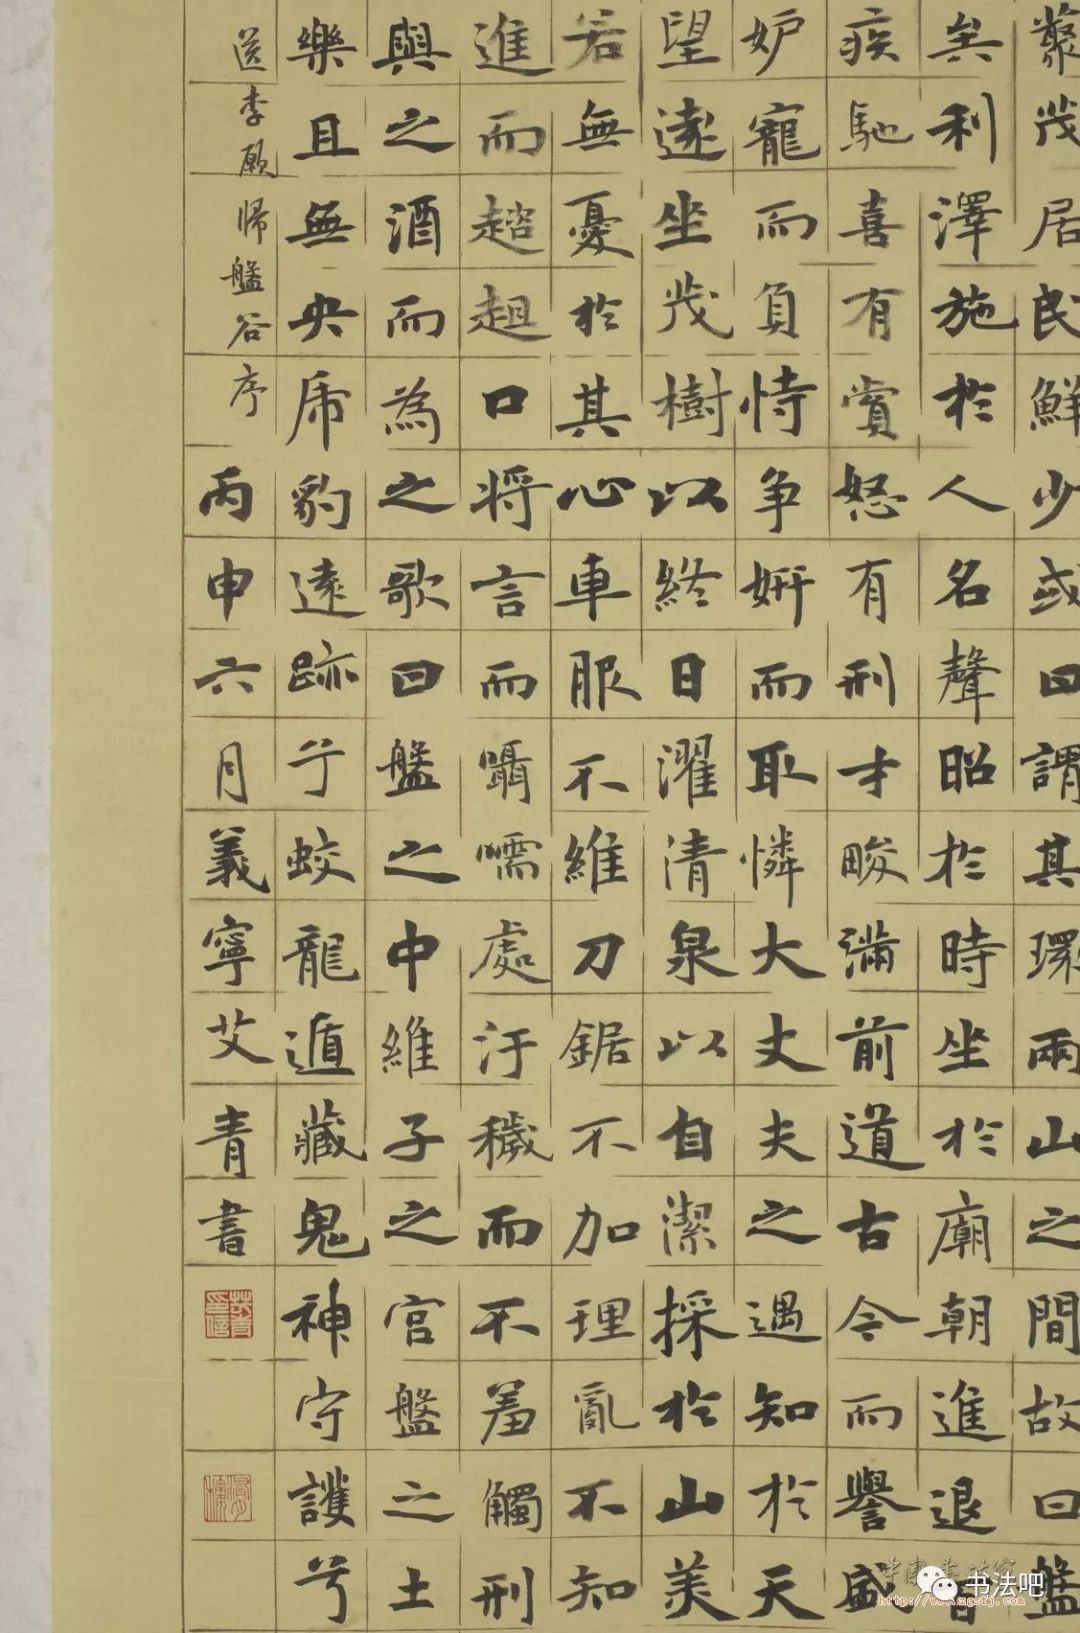 叢茂居民鮮少或曰謂其環兩山之間故曰盤
矣利澤施於人名聲昭於時坐於廟朝進退百
疾馳喜有賞怒有刑才畯滿前道古今而譽盛
妒寵而負恃爭妍而取憐大丈夫之遇知於天
望遠坐茂樹以終日濯清泉以自潔採於山美
若無憂於其心車服不維刀鋸不加理亂不知
進而趑趄口將言而囁嚅處汙穢而不羞觸刑
與之酒而為之歌曰盤之中維子之宮盤之土
樂且無央虎豹遠跡兮蛟龍遁藏鬼神守護兮
送李愿歸盤谷序
丙申六月義寧艾青書
书法吧